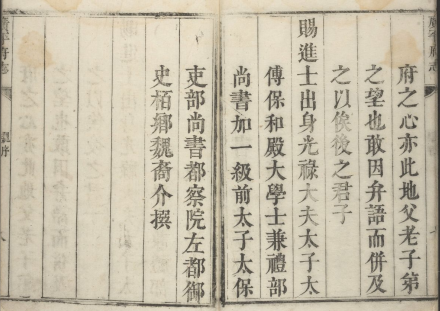 府之心亦此地父老子第
之望也敢因弁語而併及
之以俟後之君子
賜進士出身光祿大夫太子太
傅保和殿大學士兼禮部
尚書加一級前太子太保
吏部尚書都察院左都御
史栢鄉魏裔介撰